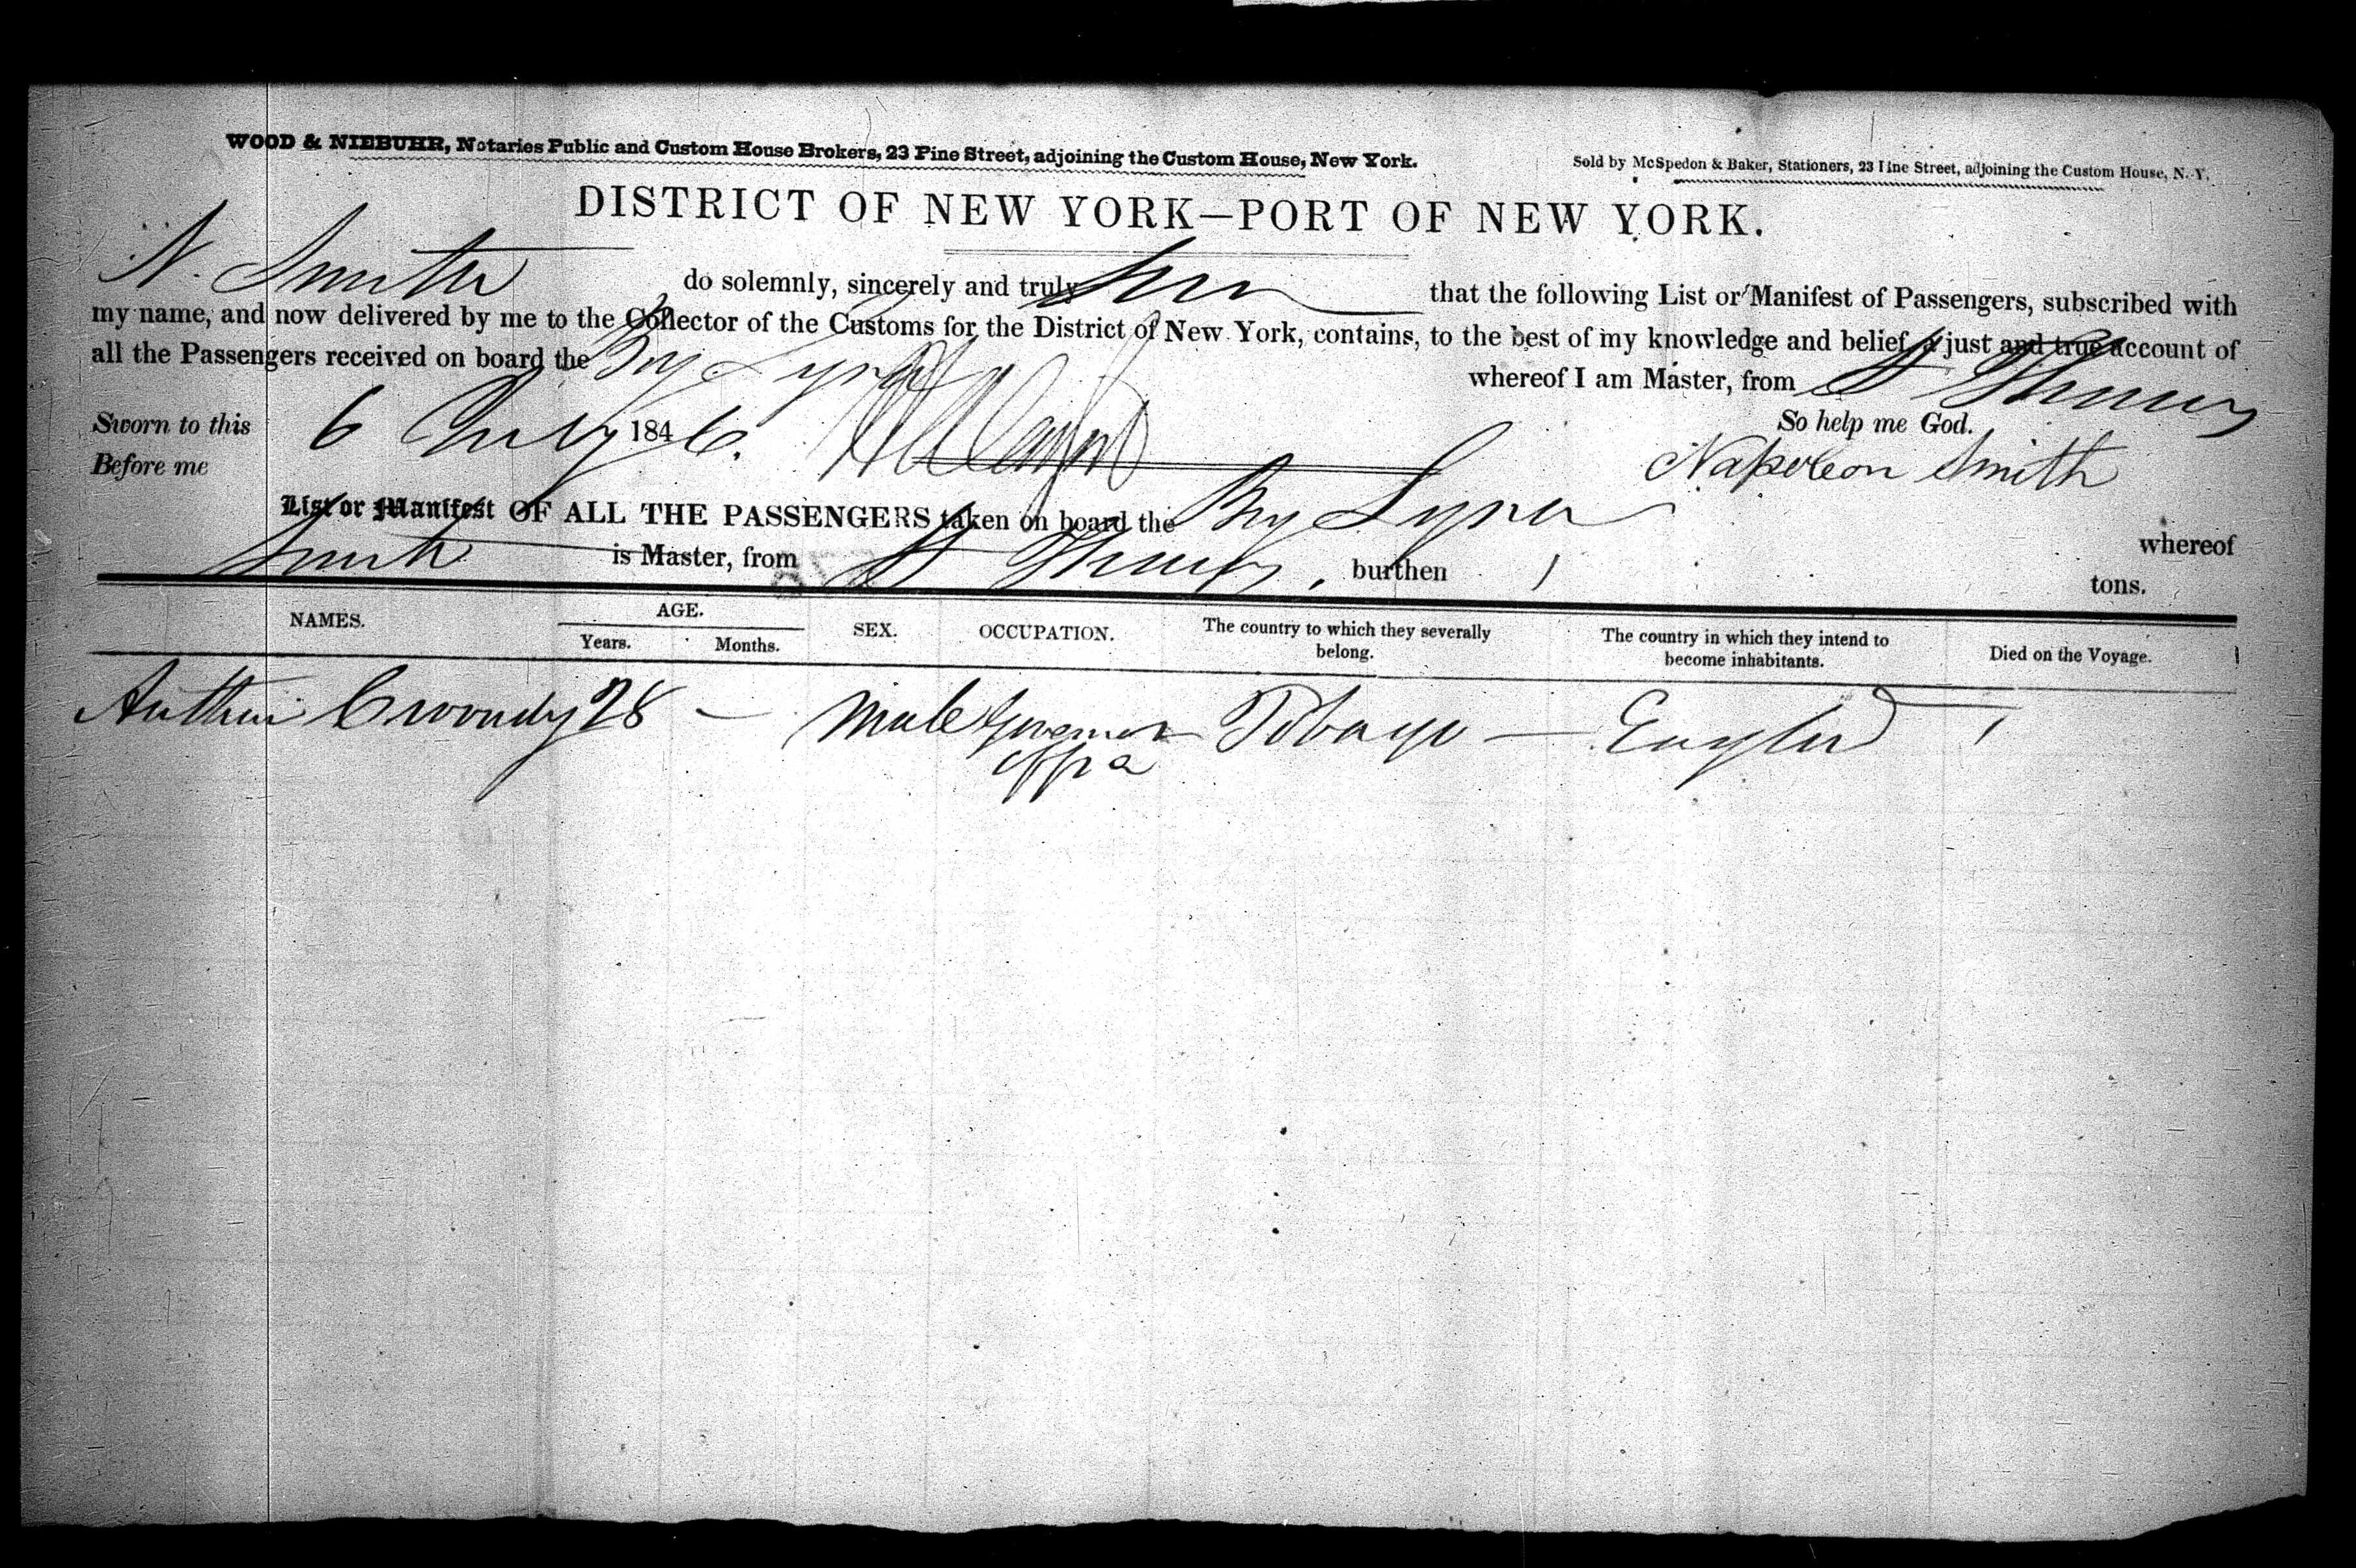 WOOD & NIEBUHR, Notaries Public and Custom House Brokers, 23 Pine Street, adjoining the Custom House, New York.
Sold by McSpedon & Baker, Stationers, 23 Pine Street, adjoining the Custom House, N. Y.
DISTRICT OF NEW YORK—PORT OF NEW YORK.
N. Smith do solemnly, sincerely and truly that the following List or Manifest of Passengers, subscribed with
my name, and now delivered by me to the Collector of the Customs for the District of New York, contains, to the best of my knowledge and belief, a just and true account of
all the Passengers received on board the Brig Lyra whereof I am Master, from St Thomas
Sworn to this 6 July 1846. So help me God.
Before me Napoleon Smith
List or Manifest OF ALL THE PASSENGERS taken on board the Brig Lyra whereof
Smith is Master, from St Thomas, burthen tons.
NAMES. AGE. SEX. OCCUPATION. The country to which they severally belong. The country in which they intend to become inhabitants. Died on the Voyage.
Years. Months.
28 — Male Tobago — England